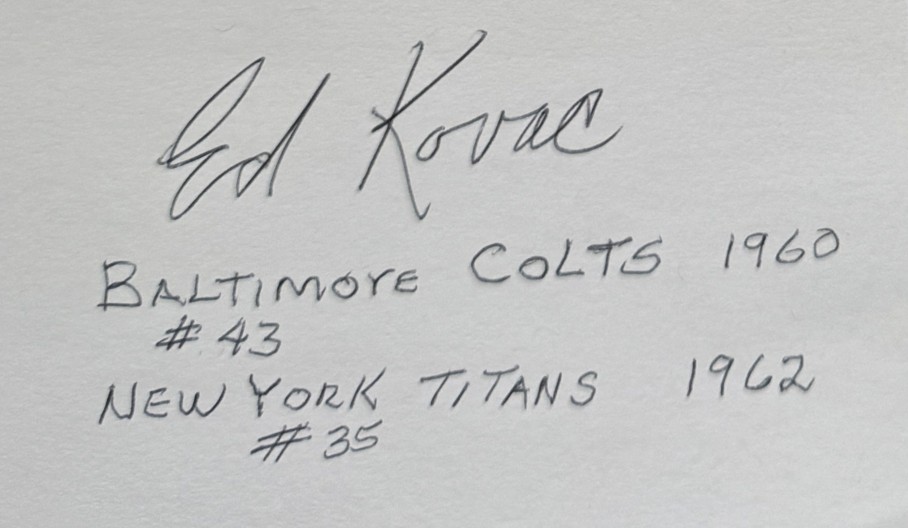 Ed Kovac
BALTIMORE COLTS 1960
# 43
NEW YORK TITANS 1962
# 35